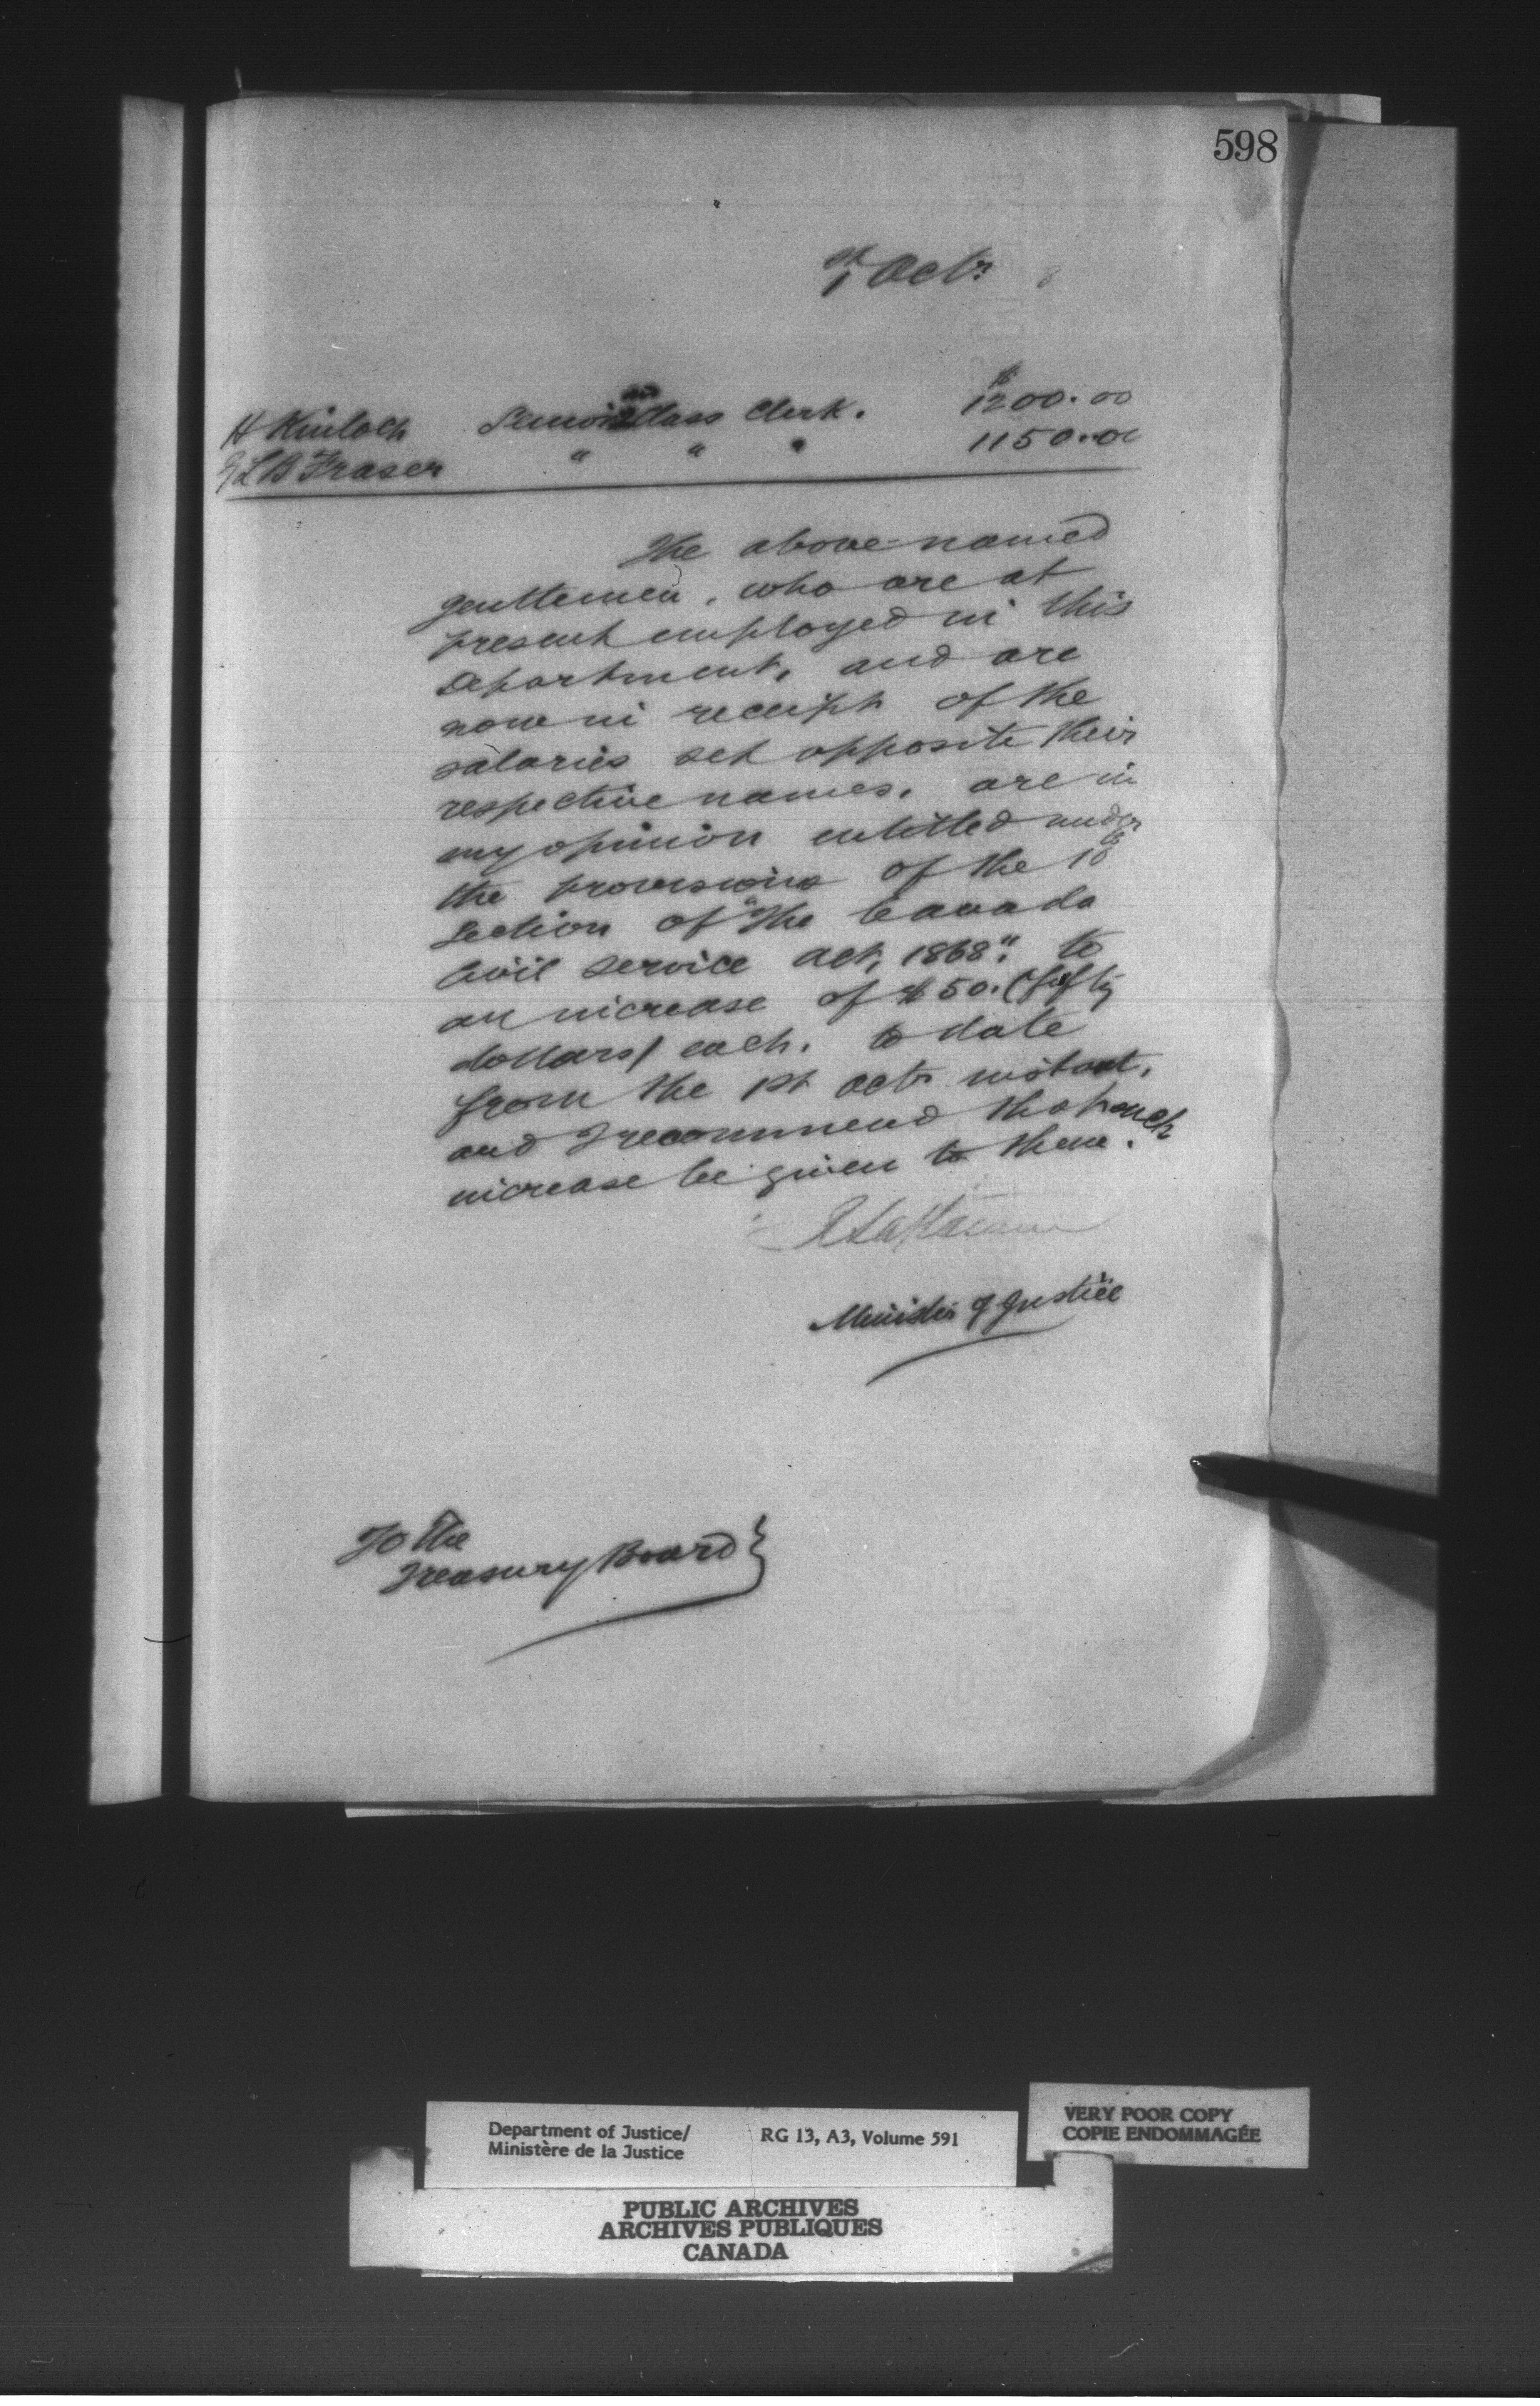 598
1st Octr 8
H Kinloch Senior 2nd Class Clerk. $1200.00
J L B Fraser " " " 1150.00
The above-named
gentlemen, who are at
present employed in this
Department, and are
now in receipt of the
salaries set opposite their
respective names, are in
my opinion entitled under
the provisions of the 10
Section of "The Canada
Civil Service Act, 1868": to
an increase of $50. (fifty
dollars) each, to date
from the 1st Octr instant,
and I recommend that such
increase be given to them.
Minister of Justice
To the
Treasury Board
Department of Justice/ RG 13, A3, Volume 591
Ministère de la Justice
VERY POOR COPY
COPIE ENDOMMAGÉE
PUBLIC ARCHIVES
ARCHIVES PUBLIQUES
CANADA